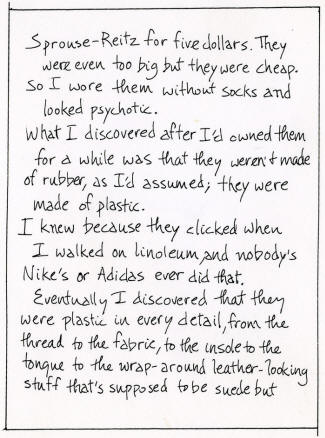 Sprouse-Reitz for five dollars. They
were even too big but they were cheap.
So I wore them without socks and
looked psychotic.
What I discovered after I'd owned them
for a while was that they weren't made
of rubber, as I'd assumed; they were
made of plastic.
I knew because they clicked when
I walked on linoleum, and nobody's
Nike's or Adidas ever did that.
Eventually I discovered that they
were plastic in every detail, from the
thread to the fabric, to the insole to the
tongue to the wrap-around leather-looking
stuff that's supposed to be suede but